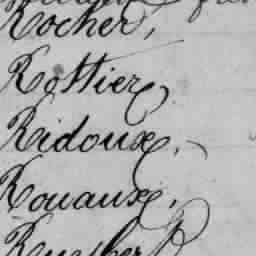 Rocher,
Rottier,
Ridoux,
Rouaux,